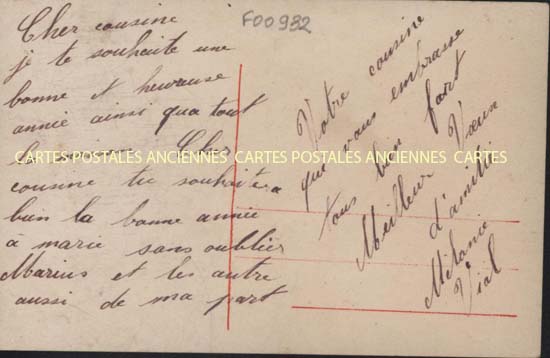 F00932
Cher cousine
je te souhaite une
bonne et heureuse
année ainsi qua tout
Cher
cousine tu souhaitera
bien la bonne année
à marie sans oublier
Marius et les autre
aussi de ma part
Votre cousine
que vous embrasse
tous bien fort
Meilleur Vœux
d'amitié
Mélanie
Vial
CARTES POSTALES ANCIENNES CARTES POSTALES ANCIENNES CARTES POSTALES ANCIENNES